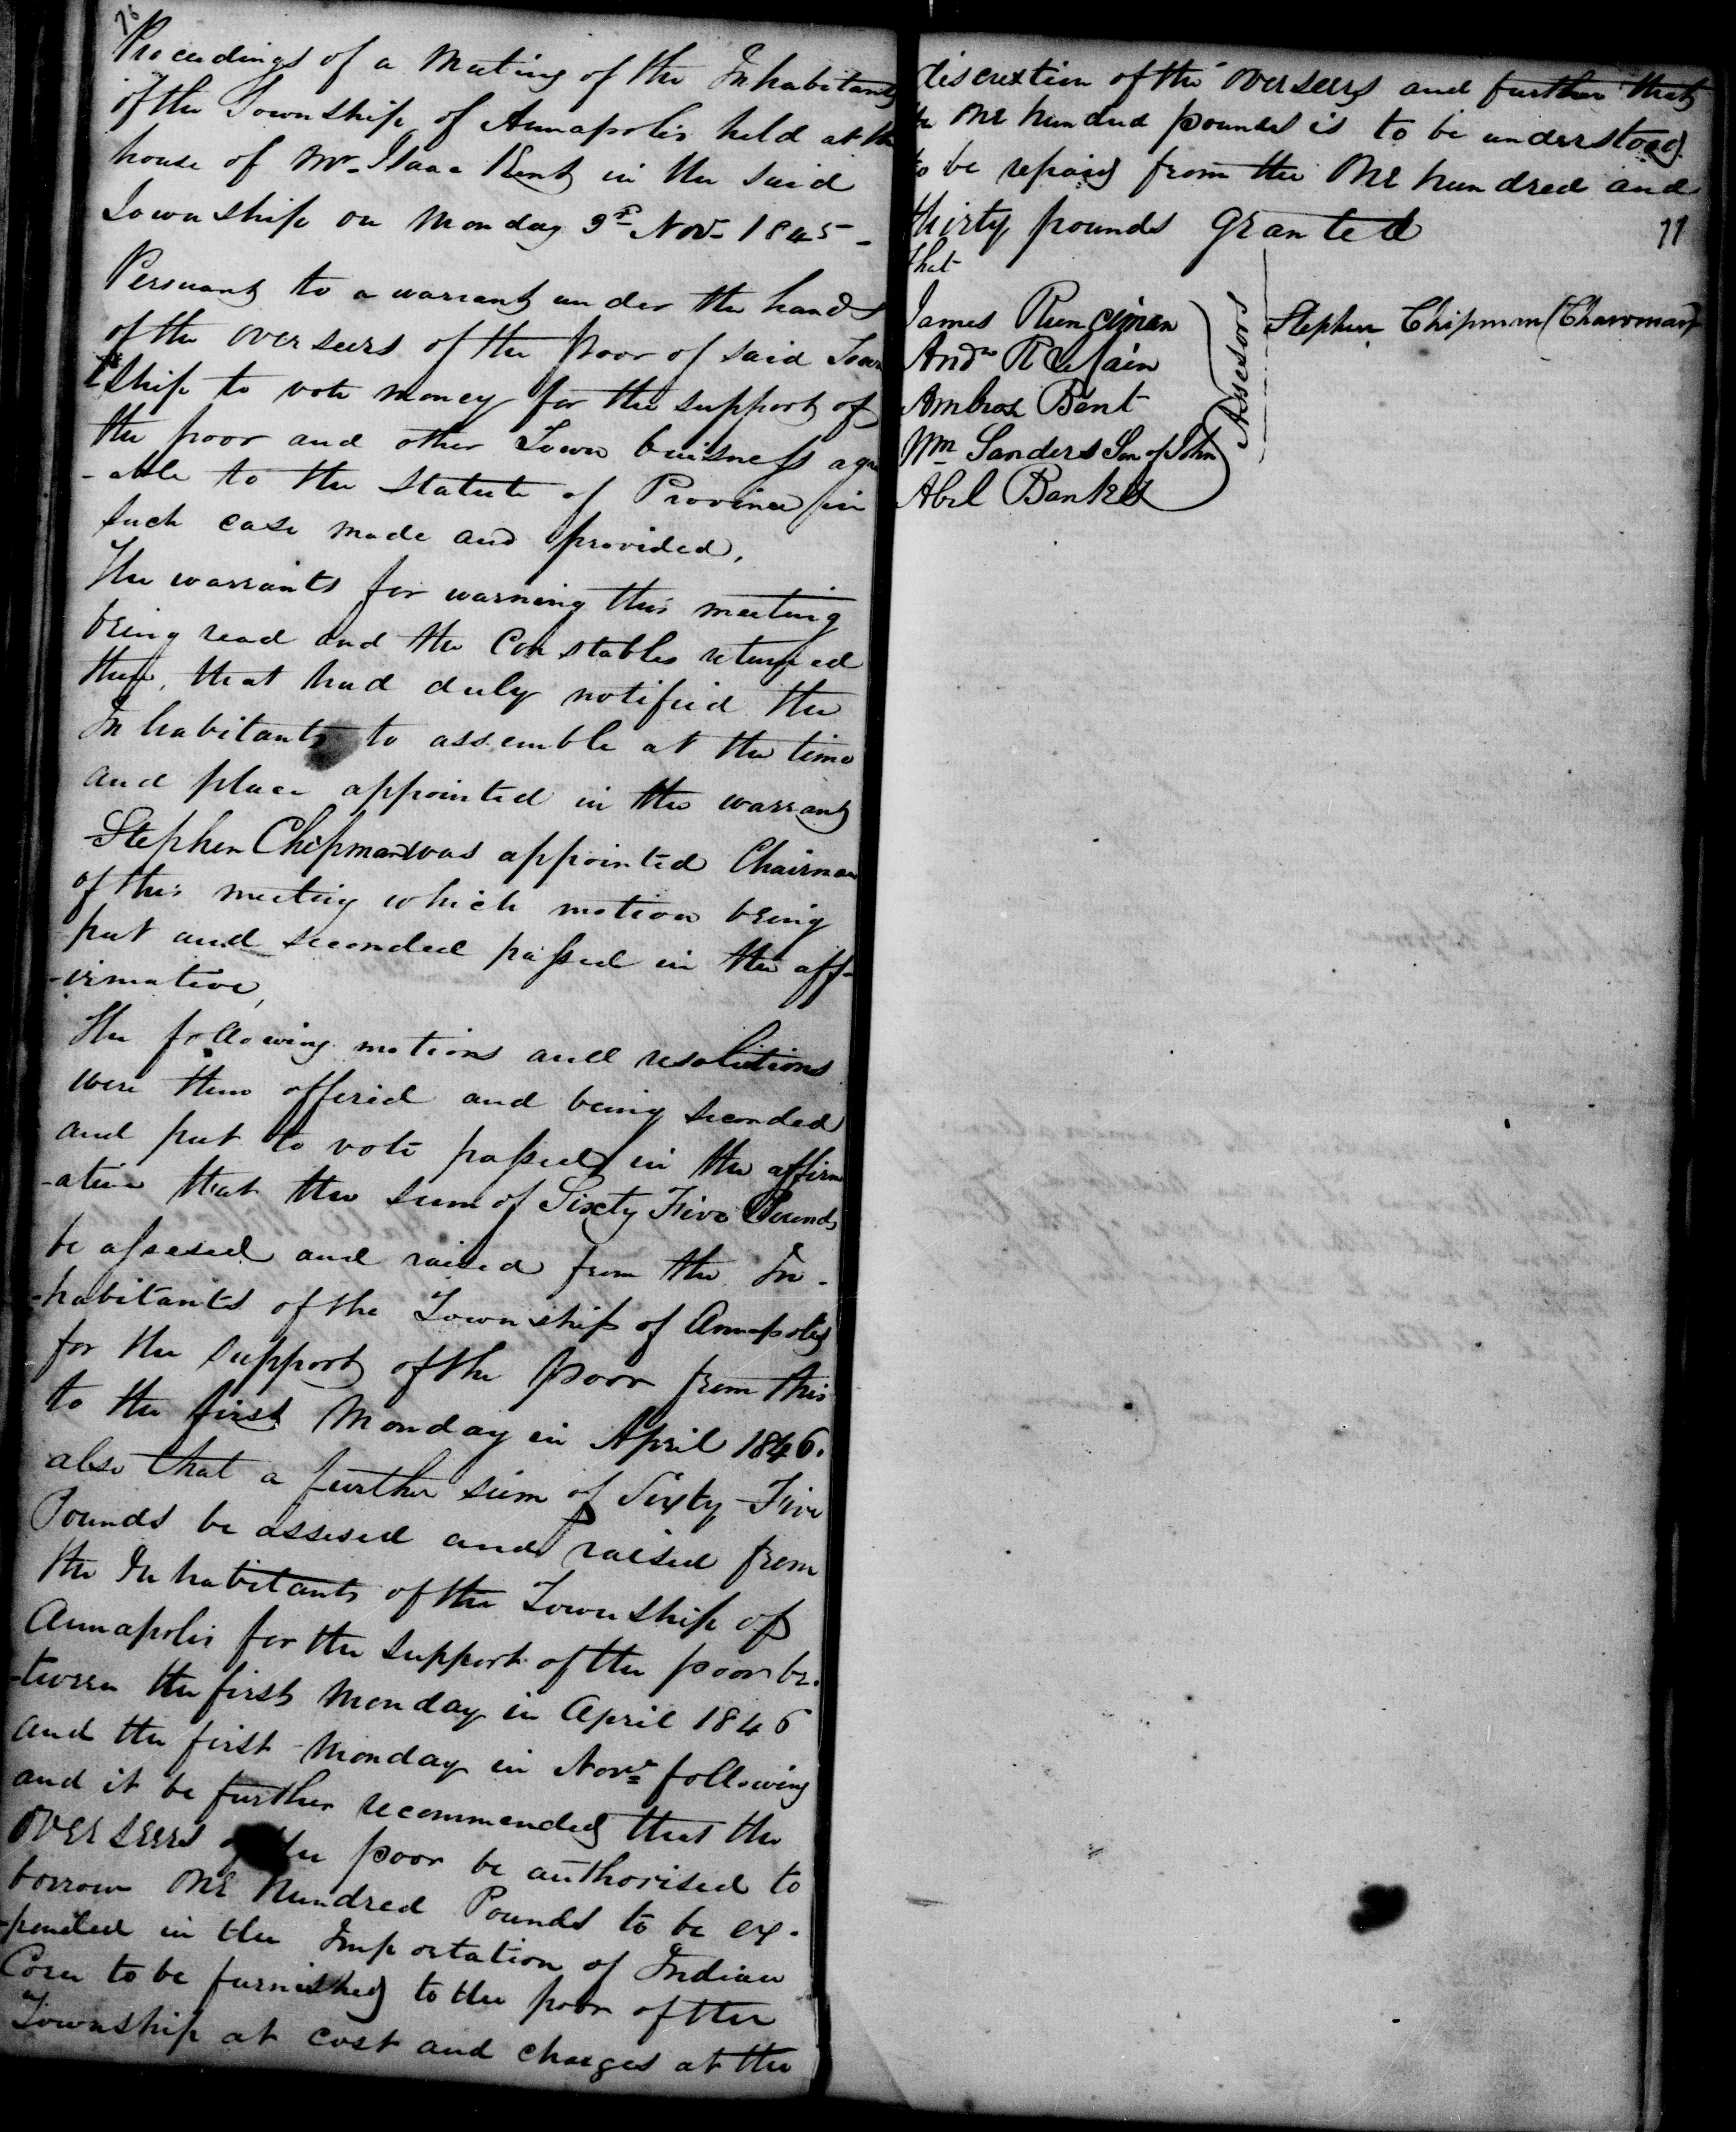 76
Proceedings of a Meeting of the Inhabitants
of the Township of Annapolis held at the
house of Mr. Isaac Kent in the said
Township on Monday 3d Nov. 1845 -
Persuant to a warrant under the hands
of the overseers of the poor of said Town
ship to vote money for the support of
the poor and other Town buisness agre
-able to the Statute of Province in
such case made and provided,
The warrants for warning this meeting
being read and the Constables returned
that had duly notified the
Inhabitants to assemble at the time
and place appointed in the warrant
Stephen Chipman was appointed Chairman
of this meeting which motion being
put and seconded passed in the aff-
-irmative,
The following motions and resolutions
were then offered and being seconded
and put to vote passed in the affirm
-ative that the sum of Sixty Five Pounds
be assesed and raised from the In-
-habitants of the Township of Annapolis
for the support of the poor from this
to the first Monday in April 1846.
also that a further sum of Sixty-Five
Pounds be assesed and raised from
the Inhabitants of the Township of
Annapolis for the support of the poor be-
-tween the first Monday in April 1846
and the first Monday in Novr following
and it be further recommended that the
overseers of the poor be authorised to
borrow one hundred Pounds to be ex-
-pended in the Importation of Indian
Corn to be furnished to the poor of the
Township at cost and charges at the
discrextion of the overseers and further that
the one hundred pounds is to be understood
to be repaid from the one hundred and
thirty pounds granted
77
that
James Runciman
Andw
Ambros Bent
Wm Sanders Son of John
Abel Banks
Assesors
Stephen Chipman (Chairman)